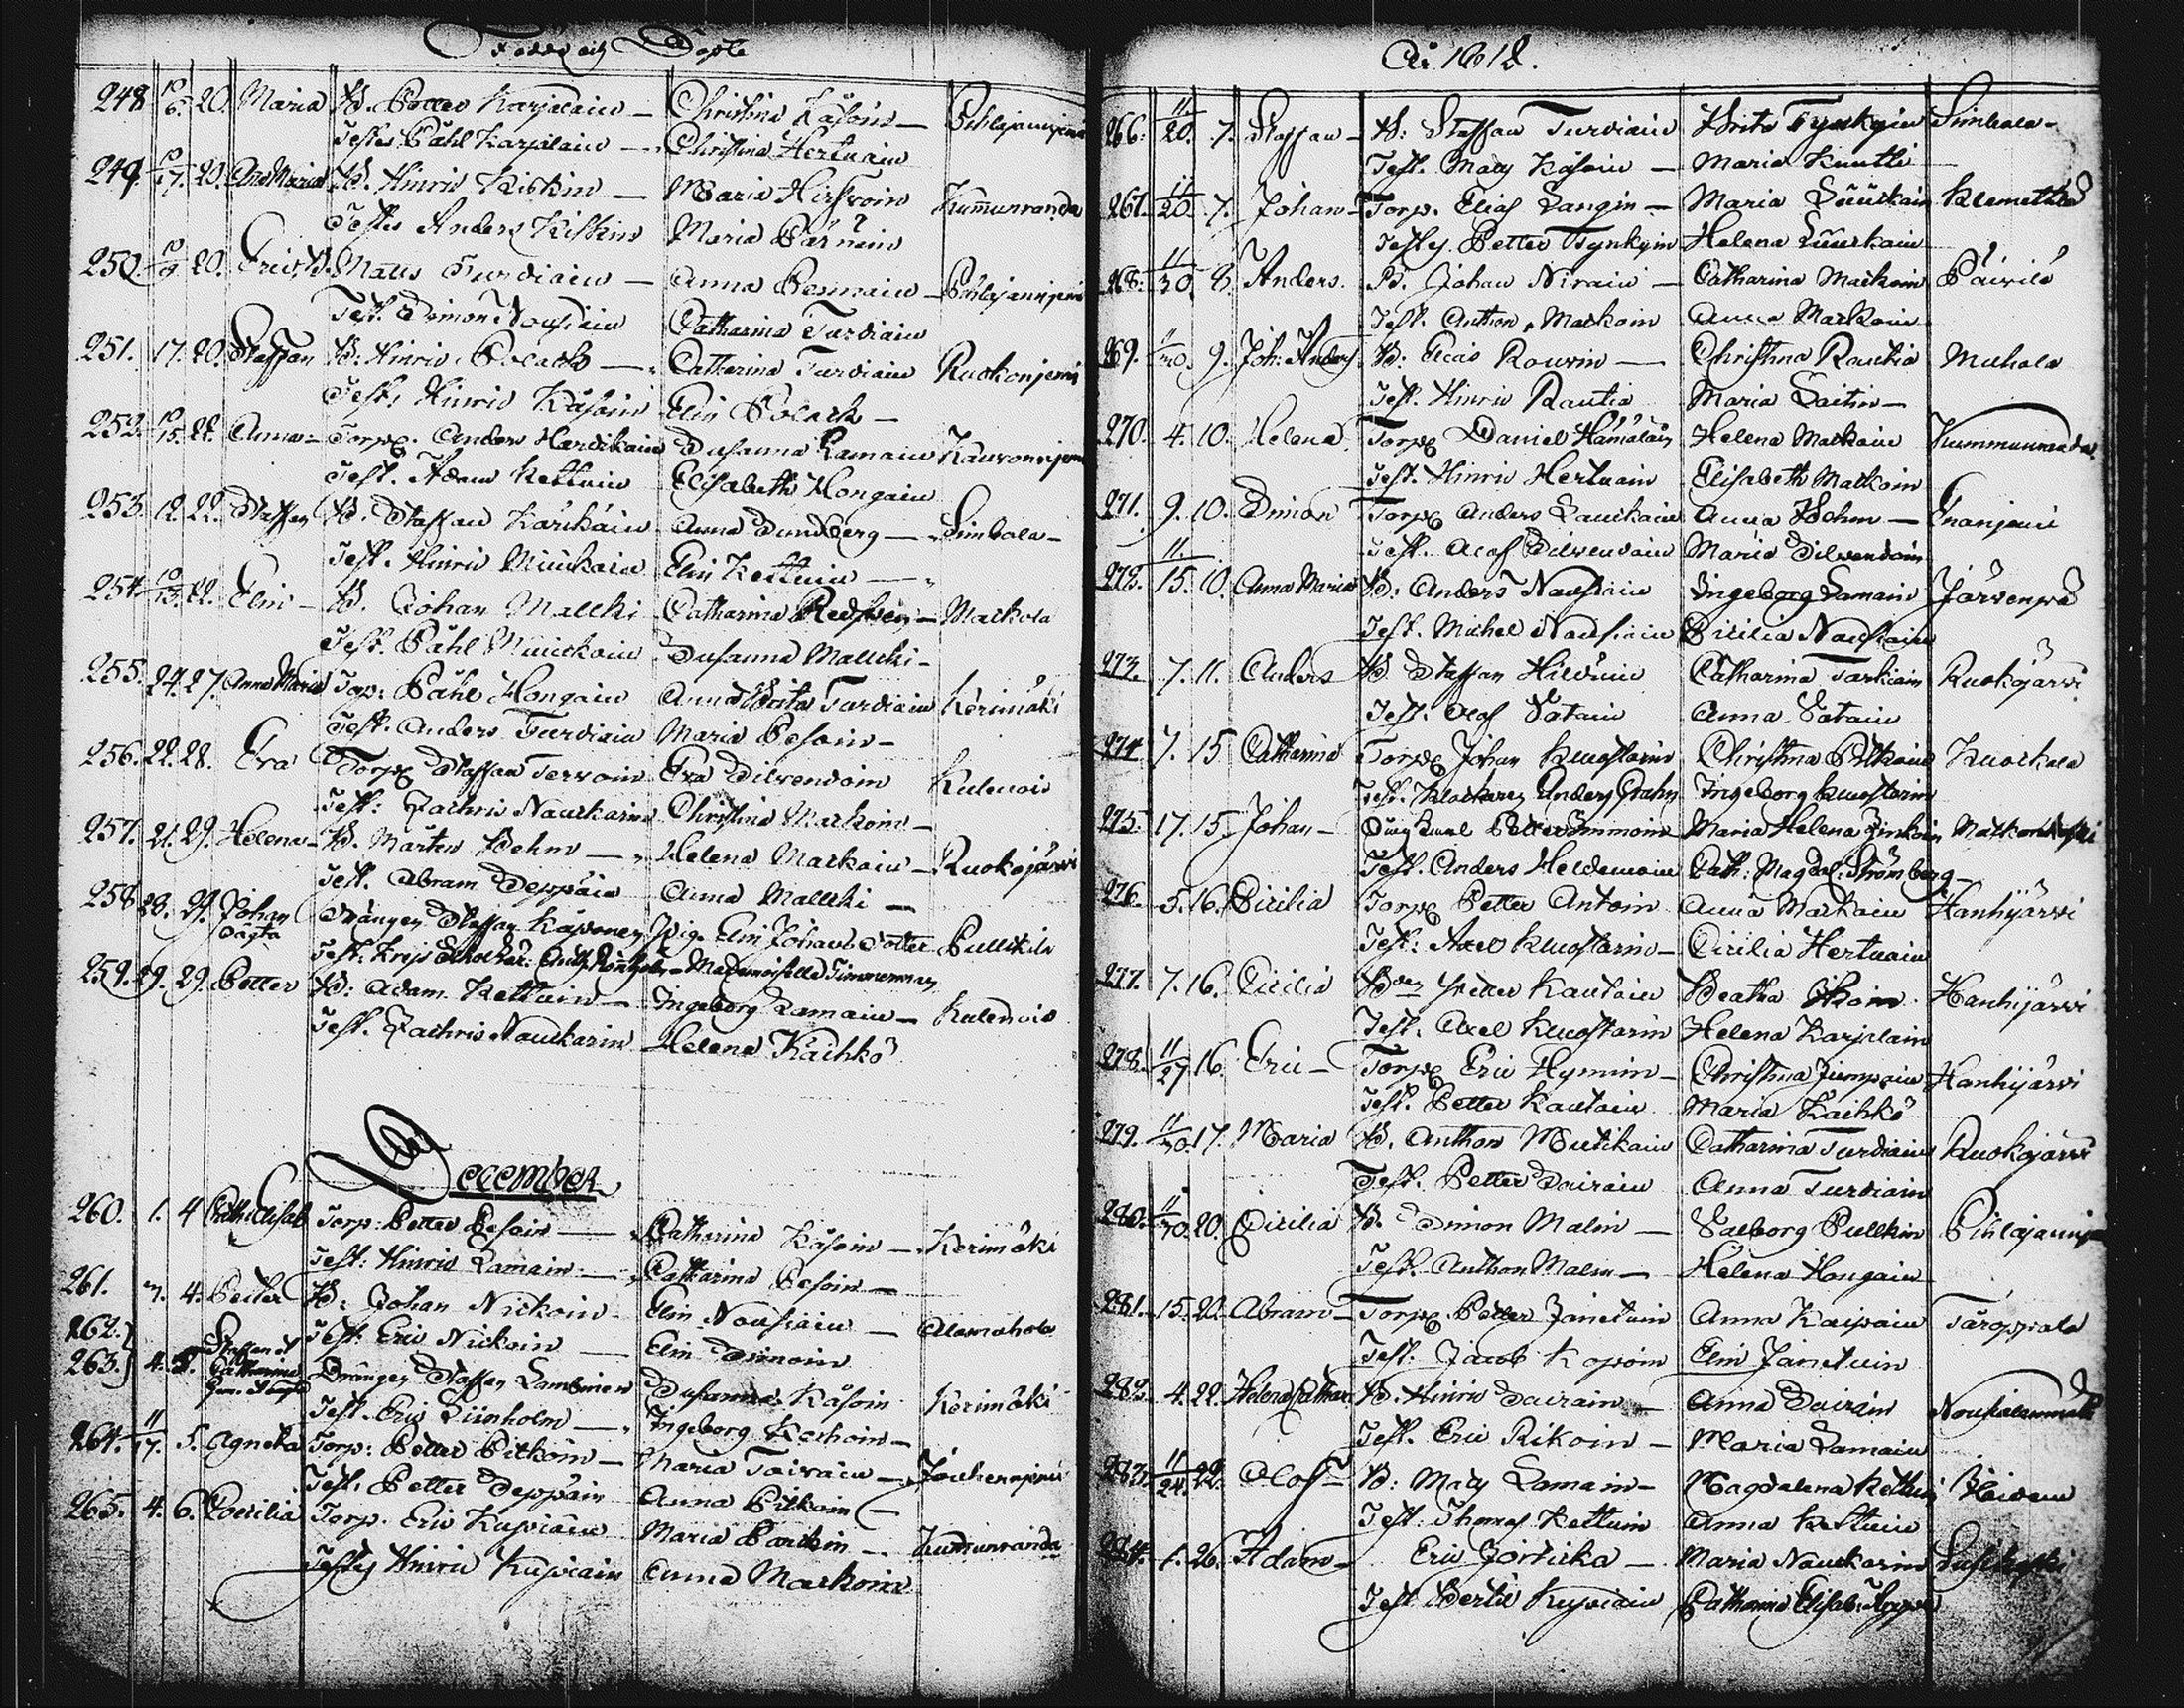 Födde och Döpte
248. 10/6. 20. Maria B. Petter Karjalain — Christina Käsoin — Pihlajaniemi
Testes Påhl Karjalain — Christina Hertuain
249. 20. Ana Maria B. Hinric Kiskin — Maria Hirfvoin Kummunranda
Testes Anders Kiskin Maria Pärnäin
250. 10/9 20. Eric B. Matts Turdiain — Anna Pesonain — Pihlajaniemi
Test. Simon Nousiain Catharina Turdiain
251. 17. 20. Staffan B. Hinric Polack — Catharina Turdiain Ruokoniemi
Test. Hinric Käsoin Elin Polack —
252. 10/15. 22. Anna — Torp. Anders Hardikain Susanna Lamain
Test. Adam Kettuin Elisabeth Hongain
253. 12. 22. Staffan B. Staffan Kärikäin Anna Sundberg — Simbala —
Test. Hinric Muukain Elin Kettuin —
254. 10/13. 22. Elin — B. Johan Mallki Catharina — Matkola
Test. Påhl Muukain Susanna Mallki —
255. 24. 27. Anna Maria Torp: Påhl Hongain Anna Brita Turdiain Kerimäki
Test. Anders Turdiain Maria Pesoin —
256. 22. 28. Eva Torp. Staffan Tervoin Eva Silvendoin Kulenoin
Test: Zachris Naukarin Christina Matkoin —
257. 21. 29. Helena — B. Mårten Behm — Helena Matkain — Ruokojärvi
Test. Abram Seppäin Anna Mallki —
258. 28. 29. Johan oägta Drängen Staffan Käyhönen Pig. Elin Johans dotter Pullikila
Test. Mademoiselle Timmerman
259. 29. 29. Petter B: Adam Kettuin — Ingeborg Lamain — Kulenoin
Test. Zachris Naukarin Helena Kaihko
December
260. 1. 4 Cath: Elisab Torp: Petter Pesoin — Catharina Käsoin — Kerimäki
Test: Hinric Lamain — Catharina Pesoin —
261. 3. 4. Petter B: Johan Nickoin Elin Nousiain — Alamahola
Test: Eric Nickoin — Elin Simoin
262. } Staffan et
263. } 4. 5. Catharina Drängen Staffan Lambinen Susanna Käsoin Kerimäki
Test. Eric Liinholm — Ingeborg Karhoin —
264. 11/17. 5. Agneta Torp: Petter Pitkoin — Maria Toivain — Jouhenniemi
Test. Petter Seppäin Anna Pitkoin —
265. 4. 6. Coecilia Torp. Eric Kupiain Maria Parikin — Kummunranda
Testes Hinric Kupiain Anna Matkoin
År 1812.
266. 11/20. 7. Staffan — B: Staffan Turdiain Brita Tynkyin Simbala —
Test. Mats Käsoin — Maria Kuutti —
267. 11/20. 7. Johan — Torp. Elias Langin — Maria Luukain Klemettilä
Testes Petter Tynkyin Helena Luukain
268. 11/30. 8. Anders. B. Johan Nirain — Catharina Matkoin Päivilä
Test. Anthon Matkoin Anna Matkoin
269. 11/30. 9. Joh: Anders B: Elias Rouvin — Christina Rautia Muhola
Test. Hinric Rautia Maria Laitin —
270. 4. 10. Helena Torp. Daniel Hämäläin Helena Matkain Kummunranda.
Test. Hinric Hertuain Elisabeth Matkoin
271. 9. 10. Simon Torp. Anders Laukain Anna Behm — Enanjemi
Test. Olof Silvendoin Maria Silvendoin
272. 11/15. 10. Anna Maria B: Anders Nousiain Ingeborg Lamain Järvenpä
Test. Michel Nousiain Cicilia Nousiain
273. 7. 11. Anders B Staffan Hilduin Catharina Tarkiain Ruokojärvi
Test. Olof Satain Anna Satain
274 7. 15 Catharina Torp. Johan Kuostarin Christina Pitkain Kuokala
Test. Klockaren Anders Grahn Ingeborg Kuostarin
275. 17. 15. Johan — Petter Immoin Maria Helena Zinkoin
Test. Anders Heldemain Cath: Magdal: Strömberg —
276. 5. 16. Cicilia Torp. Petter Antoin Anna Matkain Hanhijärvi
Test: Axel Kuostarin — Cicilia Hertuain
277. 7. 16. Cicilia Bden Petter Kautain Beatha Ikoin Hanhijärvi
Test. Axel Kuostarin Helena Karjalain
278. 11/27 16. Eric — Torp. Eric Hynnin — Christina Jumpain Hanhijärvi
Test. Petter Kautain Maria Kaihko
279. 11/30. 17. Maria B. Anthon Mutikain Catharina Turdiain Ruokojärvi
Test. Petter Sairain Anna Turdiain
280. 11/30. 20. Cicilia B. Simon Malin — Valborg Pullkin Pihlajaniemi
Test. Anthon Malin — Helena Hongain
281. 15. 20. Abram — Torp. Petter Jänetuin Anna Kaipain Täroppala
Test. Jacob Kopoin Elin Jänetuin
282. 4. 22. Helena Cathar: B. Hinric Sairain — Anna Sairain Nousialanmäki
Test. Eric Rikoin — Maria Lamain
283. 11/24. 22. Olof — B: Mats Lamain — Magdalena Kettuin
Test: Thomas Kettuin Anna Kettuin
284. 1. 26. Adam — Eric — Maria Naukarin
Test Bertil Kupiain Catharina Elisab: